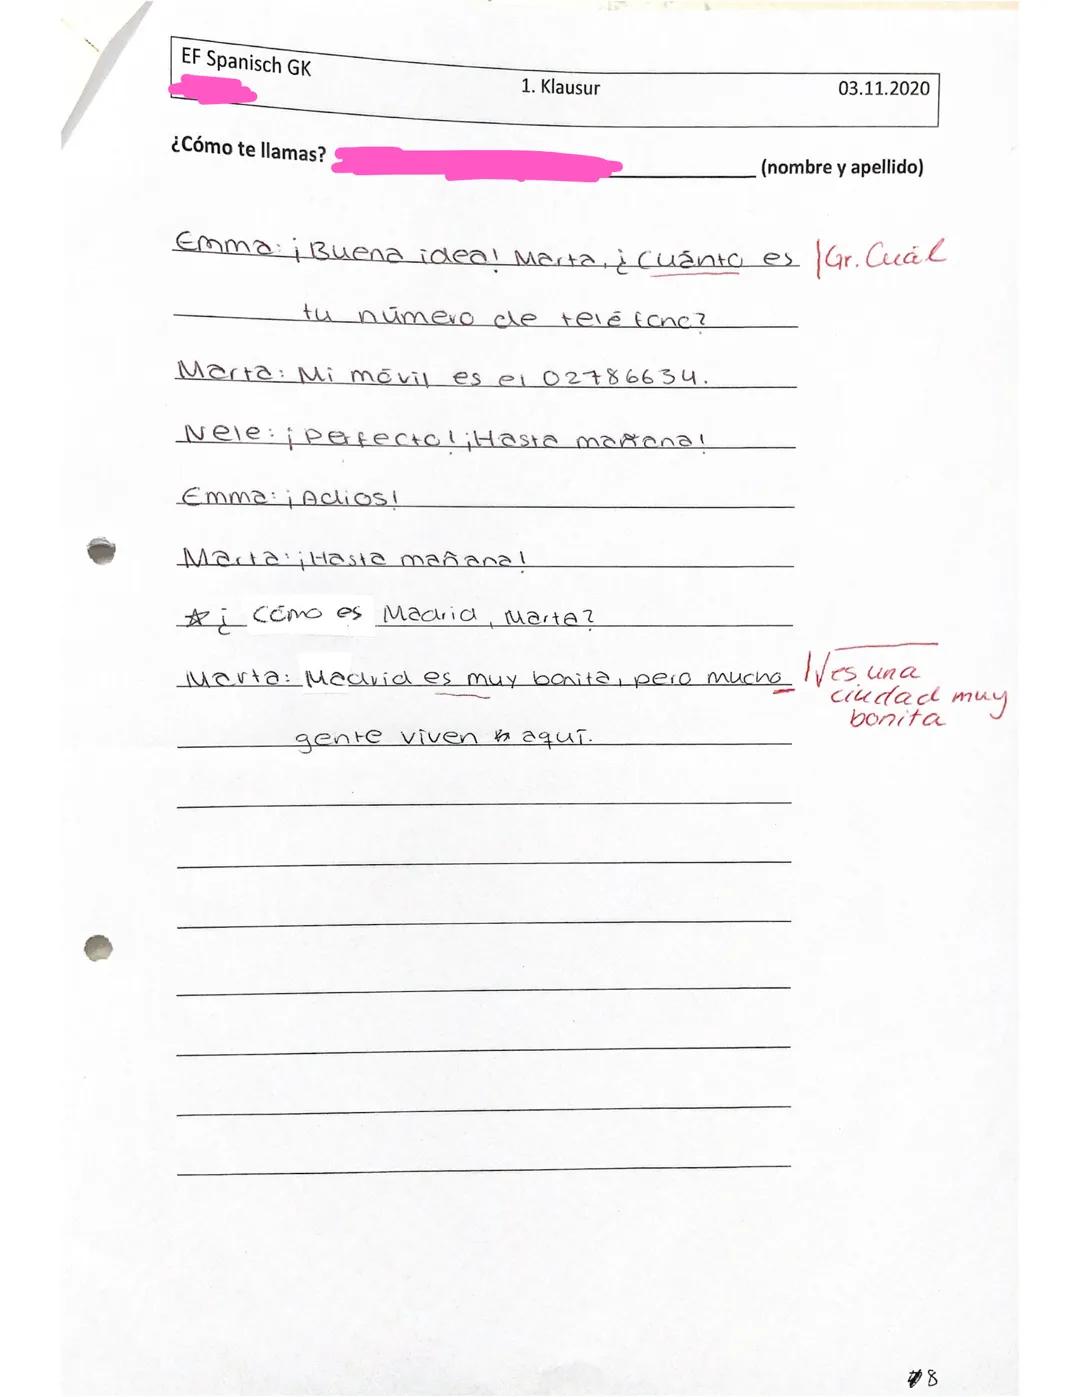 EF Spanisch GK
1. Klausur
03.11.2020
¿Cómo te llamas? (nombre y apellido)
Emma: ¡Buena idea! Marta, ¿cuánto es |Gr. Cuál
tu número de teléfono?
Marta: Mi móvil es el 02786634.
Nele: ¡Perfecto! ¡Hasta mañana!
Emma: ¡Adios!
Marta: ¡Hasta mañana!
☆¿Cómo es Madrid, Marta?
Marta: Madrid es muy bonita, pero mucha |√es una
ciudad muy
bonita
gente viven aquí.
8